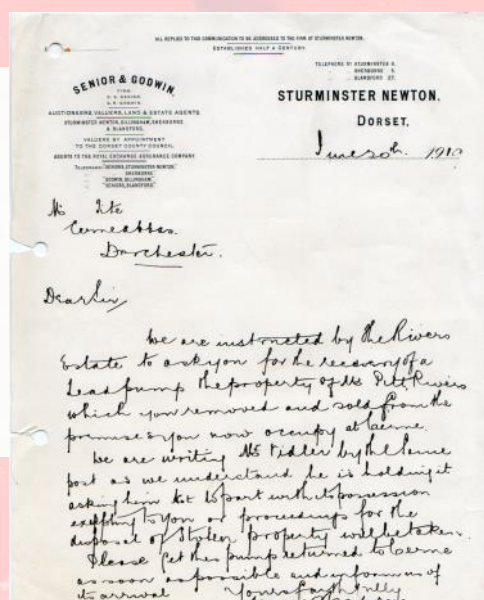 ALL REPLIES TO THIS COMMUNICATION TO BE ADDRESSED TO THE FIRM AT STURMINSTER NEWTON.
ESTABLISHED HALF A CENTURY.
TELEPHONE Nos STURMINSTER 9.
SHERBORNE 5.
BLANDFORD 27.
SENIOR & GODWIN,
AUCTIONEERS, VALUERS, LAND & ESTATE AGENTS.
STURMINSTER NEWTON, GILLINGHAM, SHERBORNE
& BLANDFORD.
VALUERS BY APPOINTMENT
TO THE DORSET COUNTY COUNCIL.
AGENTS TO THE ROYAL EXCHANGE ASSURANCE COMPANY
TELEGRAMS: "SENIORS, STURMINSTER NEWTON."
SHERBORNE
"GODWIN, GILLINGHAM."
"SENIORS, BLANDFORD."
STURMINSTER NEWTON,
DORSET,
June 20th. 1910
Mr Tite
Cerne abbas.
Dorchester.
Dear Sir,
We are instructed by the Rivers
Estate to ask you for the recovery of a
Lead pump the property of Mr Pitt Rivers
which you removed and sold from the
premises you now occupy at Cerne.
We are writing Mr Vidler by the same
post as we understand he is holding it
asking him not to part with its possession
excepting to you or proceedings for the
disposal of Stolen property will be taken.
Please get this pump returned to Cerne
as soon as possible and inform us of
its arrival Yours faithfully